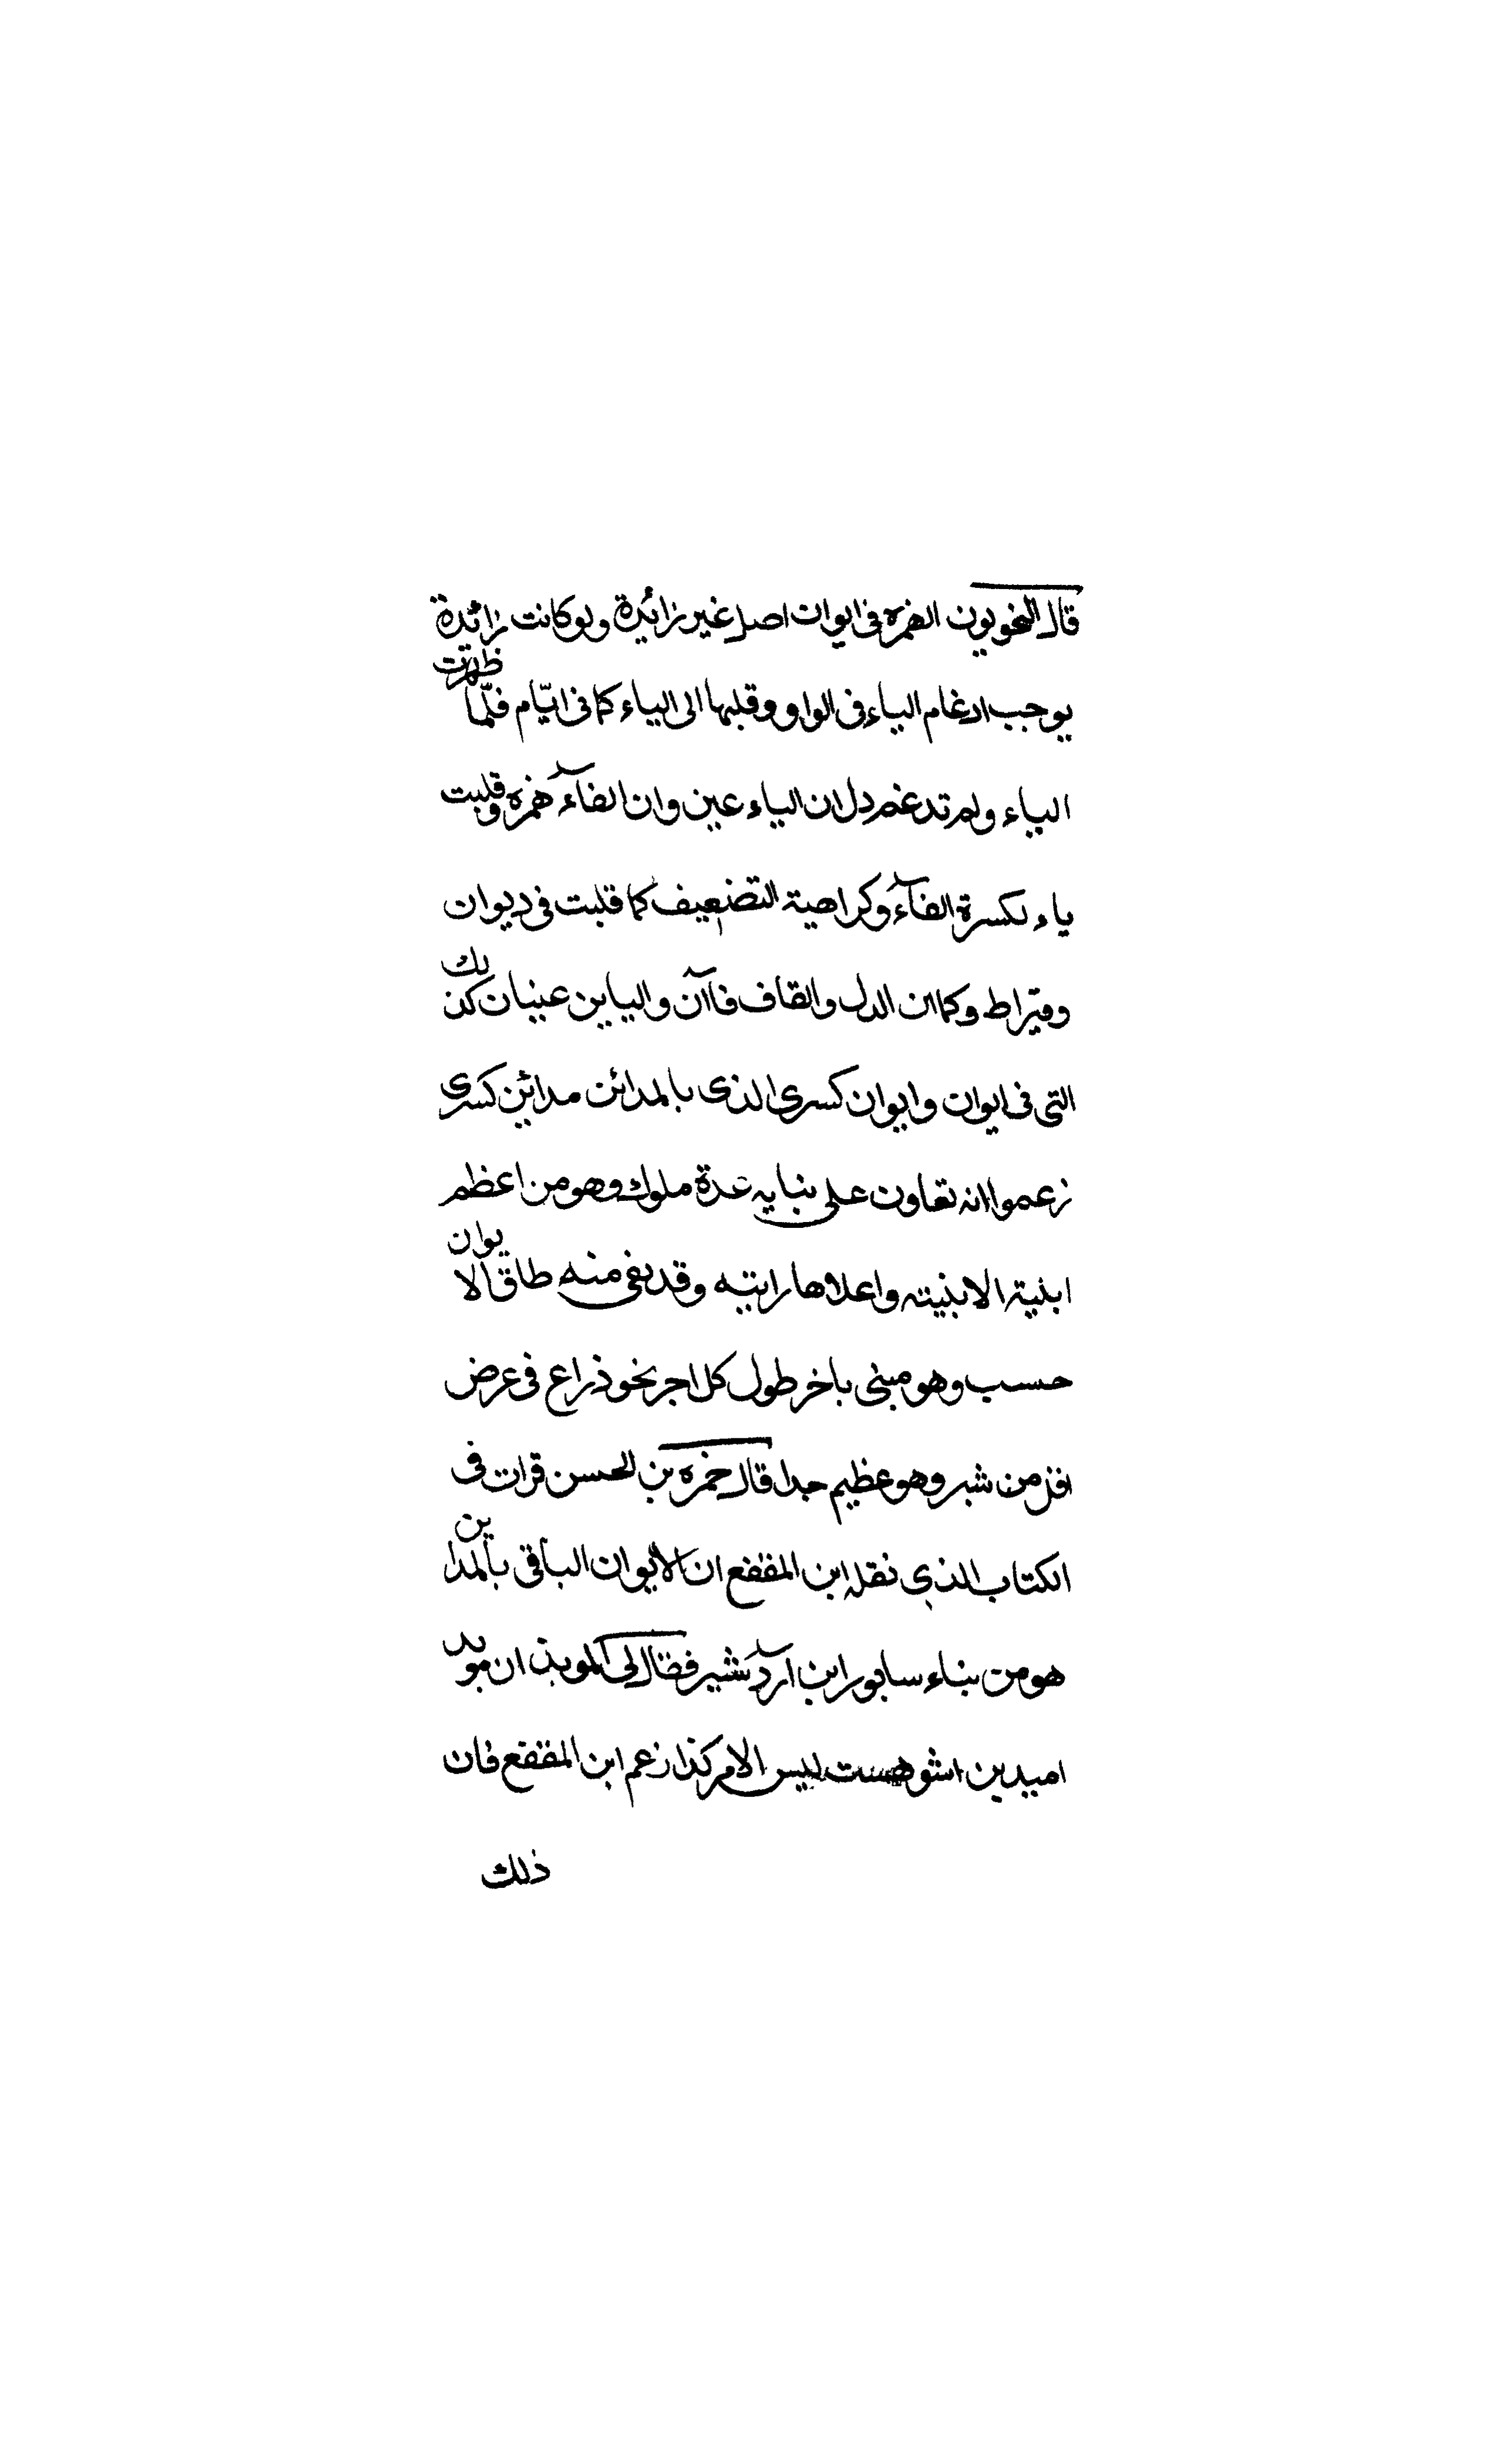 قال النحويون الهمزه فى ايوان اصل غير زائدة ولو كانت زائدة
يوجب ادغام الياء فى الواو وقلبها الى الياء كما فى ايّام فلمّا ظهرت
الياء ولم تدغم دل ان الياء عين وان الفآء همزه وقلبت
ياء لكسرة الفآء وكراهية التضعيف كما قلبت فى ديوان
وقيراط وكما ان الدل والقاف فاآن والياين عينان كذلك
التى فى ايوان وايوان كسرى الذى بالمدائن مدائن كسرى
زعموا انه تعاون على بنايه عدة ملوك وهو من اعظم
ابنية الابنيته واعلاها رايته وقد بقى منه طاق الايوان
حسب وهو مبنى باخر طول كل اجر نحو ذراع فى عرض
اقل من شبر وهو عظيم جدا قال حمزه بن الحسن قرات فى
الكتاب الذي نقله ابن المقفع ان الايوان الباقى بالمداين
هو من بناء سابور ابن آردشير فقال لى الموبذ ان موبد
اميد بن اشوهست ليس الامر كذا زعم ابن المقفع فان
ذلك